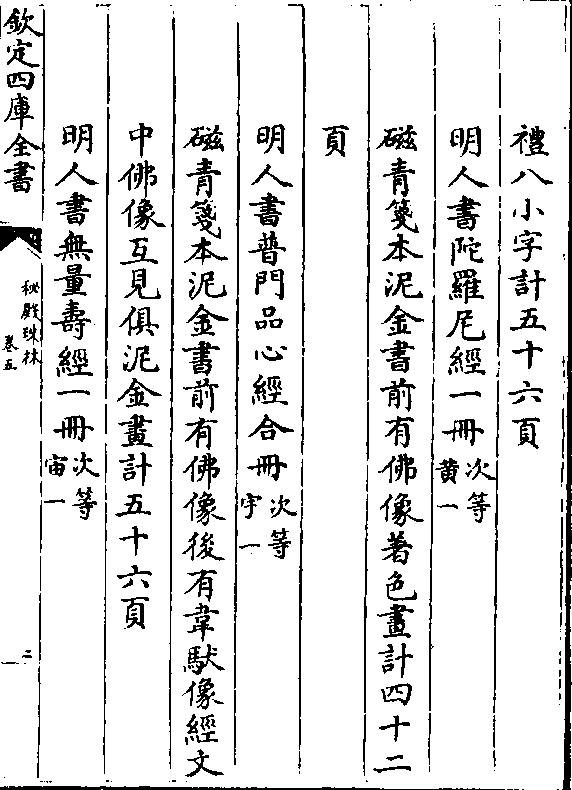 禮八小字計五十六頁
明人書陀羅尼經一冊次等黃一
磁青箋本泥金書前有佛像著色畫計四十二
頁
明人書普門品心經合冊次等宇一
磁青箋本泥金書前有佛像後有韋馱像經文
中佛像互見俱泥金畫計五十六頁
明人書無量壽經一冊次等宙一
欽定四庫全書
秘殿珠林
卷五
二